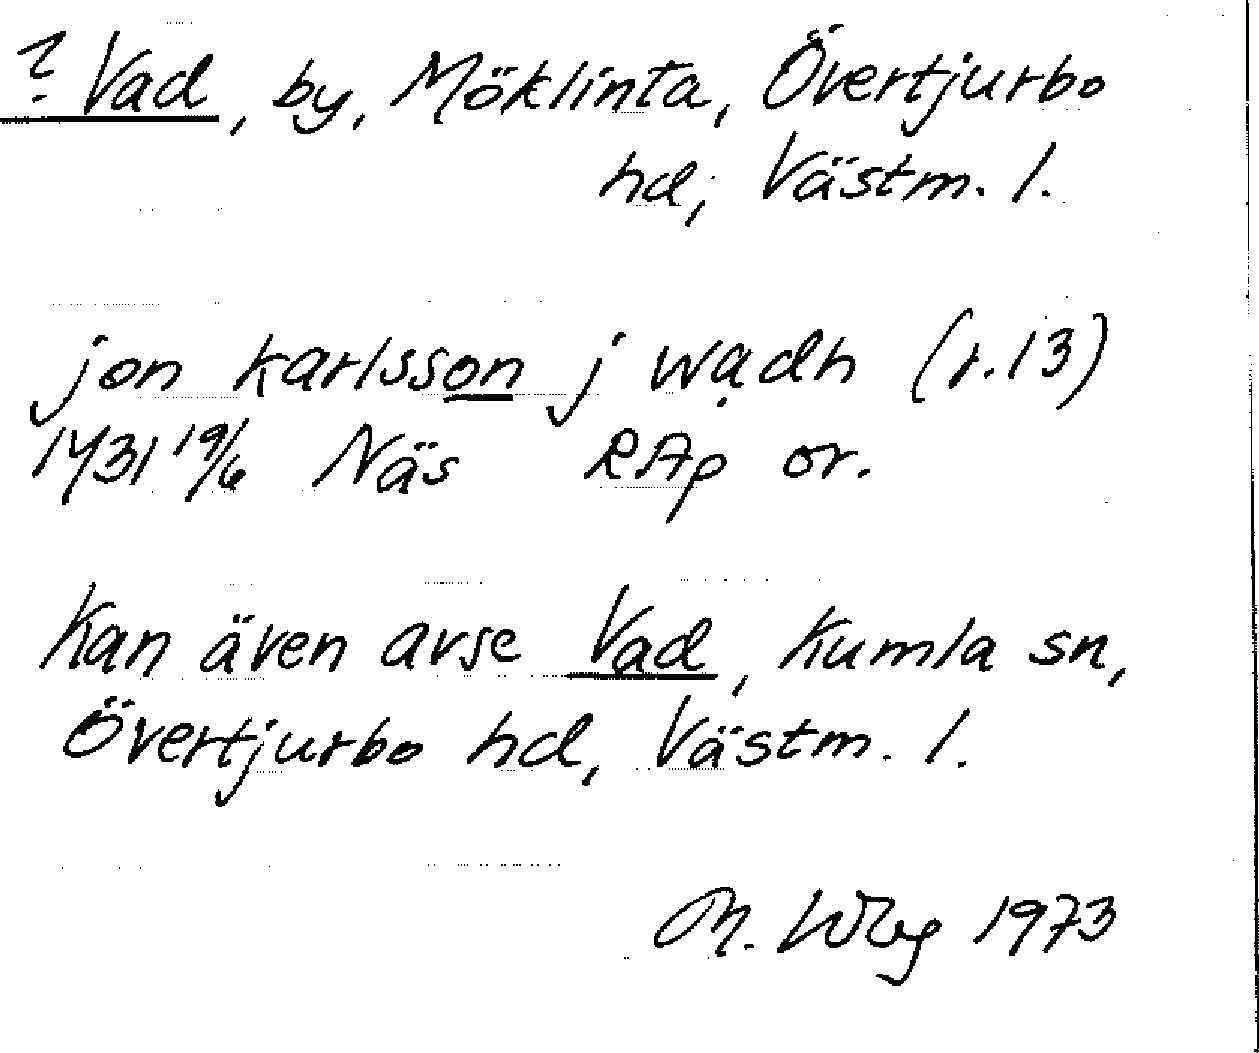 ? Vad, by, Möklinta, Övertjurbo
hd, Västm. l.
jon karlsson j wadh (r.13)
1431 19/6 Näs RAp or.
Kan även avse Vad, Kumla sn,
Övertjurbo hd, Västm. l.
M. Wbg 1973